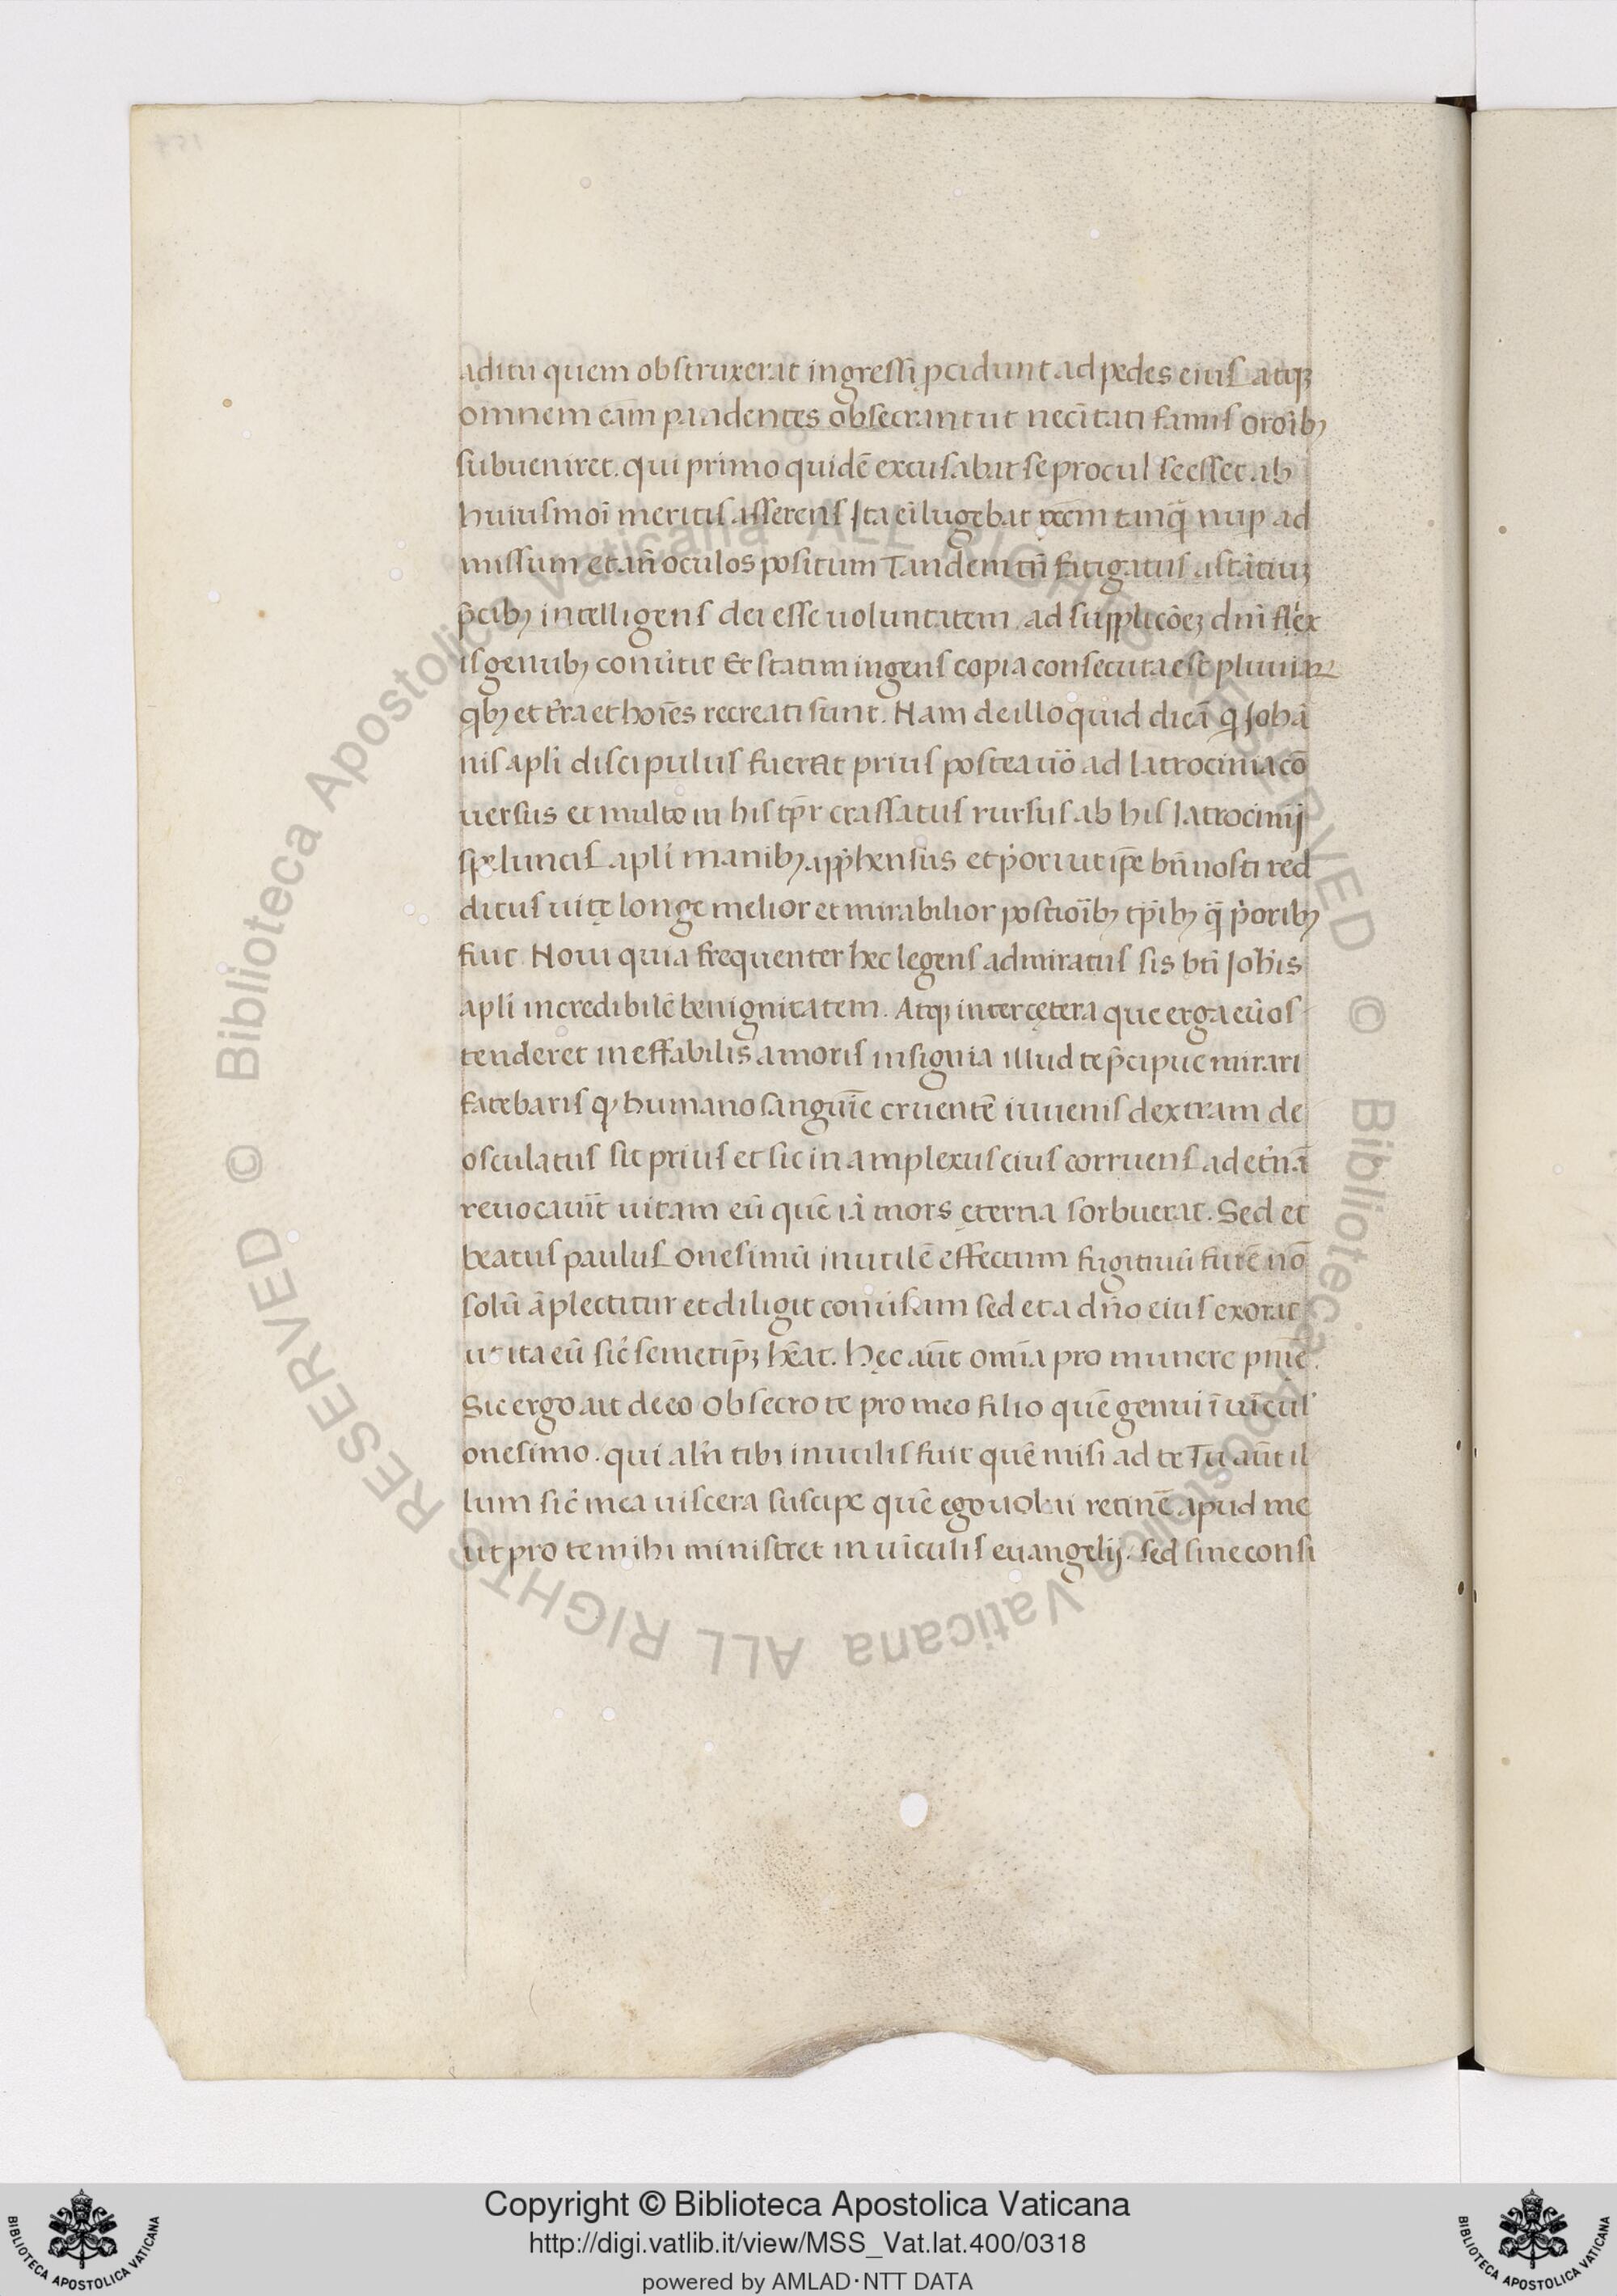 aditu quem obstruxerat ingressi ꝓcidunt ad pedes eius atqꝫ
omnem eam pandentes obsecrant ut necītati famis oroīb₉
subueniret. qui primo quidē excusabat se procul se esset ab
huiusmōi meritis asserens Ita eī lugebat tanq̄ nuꝑ ad
missum et añ oculos positum Tandem tñ fatigatus astātiuꝫ
p̄cib₉ intelligens dei esse uoluntatem. ad supplicōeꝫ dñi flex
is genub₉ conūtit Et statim ingens copia consecuta est pluuiaꝝ
qb₉ et t̄ra et hoīes recreati sunt. Nam de illo quid dicā q̇ Johā
nis apłi discipulus fuerat prius postea uō ad latrocinia cō
uersus et multo in his tꝑr crassatus rursus ab his latrocinij
speluncis apłi manib₉ app̄hensus et p̄ori ut ip̄e bñ nosti red
ditus uitę longe melior et mirabilior postioīb₉ tꝑib₉ q̄ p̄orib₉
fuit. Noui quia frequenter hec legens admiratus sis bti Joħis
apłi incredibilē benignitatem. Atqꝫ inter cętera que erga eū os
tenderet ineffabilis amoris insignia illud te p̄cipue mirari
fatebaris ꝙ humano sanguīe cruentē iuuenis dextram de
osculatus sit prius et sic in amplexus eius corruens ad et̄nā
reuocauīt uitam eū quē iā mors ęterna sorbuerat. Sed et
beatus paulus onesimū inutilē effectum fugitiuū furē nō
solū āplectitur et diligit conūsum sed et a dño eius exorat
ut ita eū sic̄ semetip̄ꝫ hēat. Hęc aūt omīa pro munere pñie.
Sic ergo ait de eo Obsecro te pro meo filio quē genui ī uīcul'
onesimo. qui alñ tibi inutilis fuit quē misi ad te Tu aūt il
lum sic̄ mea uiscera suscipe quē ego uolui retinē apud me
ut pro te mihi ministret in uīculis euangelij. sed sine consi
© Biblioteca Apostolica Vaticana ALL RIGHTS RESERVED © Biblioteca Apostolica Vaticana ALL RIGHTS RESERVED
Copyright © Biblioteca Apostolica Vaticana
http://digi.vatlib.it/view/MSS_Vat.lat.400/0318
powered by AMLAD·NTT DATA
BIBLIOTECA APOSTOLICA VATICANA
BIBLIOTECA APOSTOLICA VATICANA